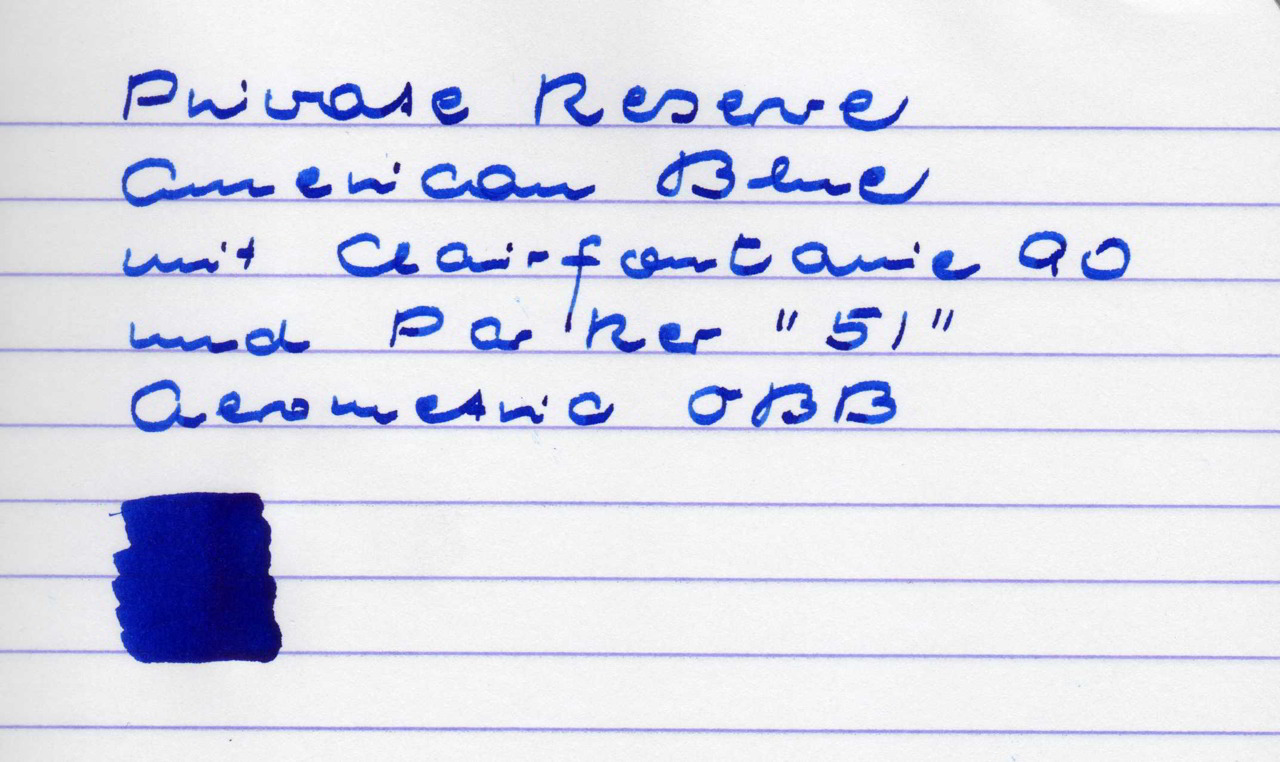 Private Reserve
American Blue
mit Clairfontanie 90
und Parker "51"
Aerometric OBB